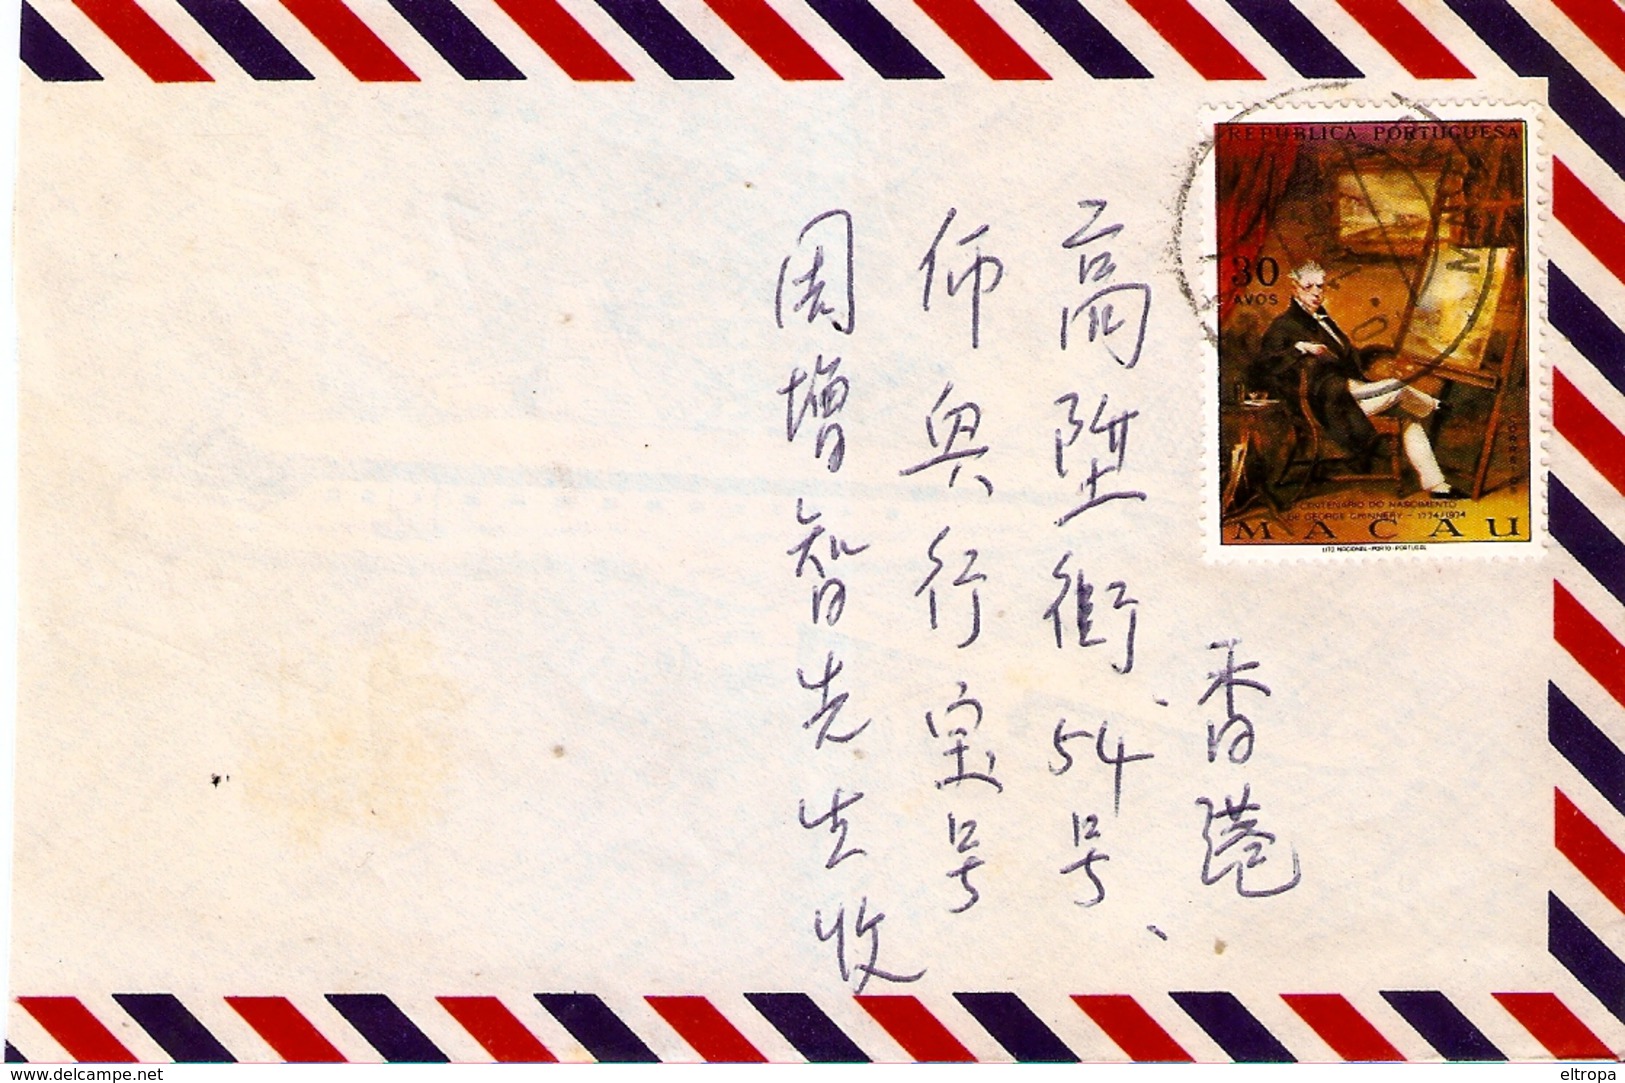 香港
高陞街、54号、
师奥行宝号
周增智先生收
REPÚBLICA PORTUGUESA
30
AVOS
CORREIOS
CENTENÁRIO DO NASCIMENTO
DE GEORGE CHINNERY - 1774/1974
MACAU
LITO NACIONAL-PORTO-PORTUGAL
www.delcampe.net
eltropa